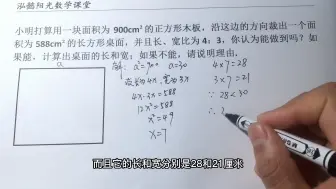 泓懿阳光数学课堂
小明打算用一块面积为 900cm² 的正方形木板，沿这边的方向裁出一个面
积为 588cm² 的长方形桌面，并且长、宽比为 4：3，你认为能做到吗？如
果能，计算出桌面的长和宽；如果不能，请说明理由。
a
解 a²=900 a=30
设长4x，宽3x
4x·3x=588
12x²=588
x²=49
x=7
4×7=28
3×7=21
∵ 28<30
∴
而且它的长和宽分别是28和21厘米